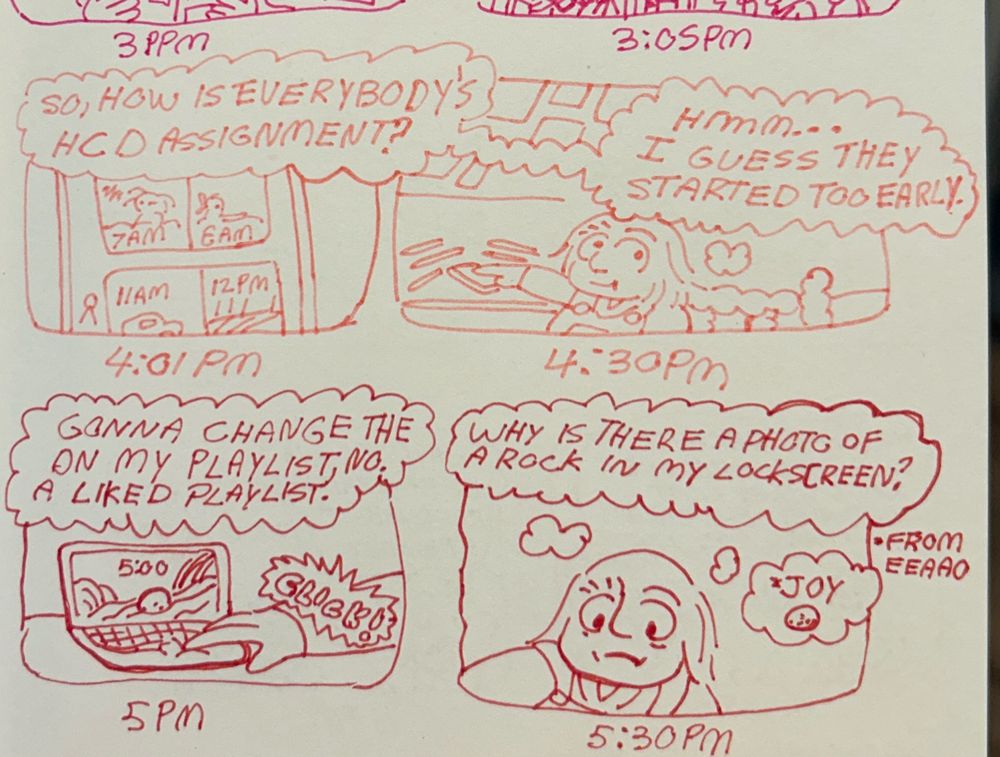 3PPM
3:05PM
SO, HOW IS EVERYBODY'S
HCD ASSIGNMENT?
7AM
6AM
11AM
12PM
4:01PM
HMM...
I GUESS THEY
STARTED TOO EARLY.
4:30PM
GONNA CHANGE THE
ON MY PLAYLIST, NO.
A LIKED PLAYLIST.
5:00
5PM
WHY IS THERE A PHOTO OF
A ROCK IN MY LOCKSCREEN?
*JOY
*FROM
EEAAO
5:30PM